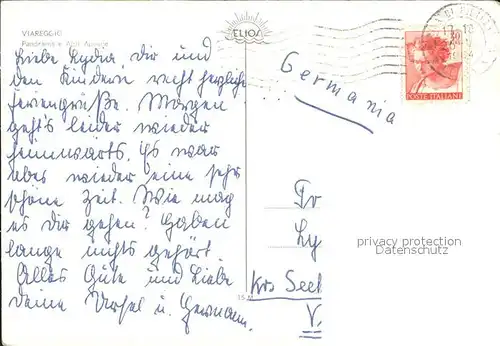 VIAREGGIO
Panorama e Alpi Apuane
Liebe Lydia, dir und
den Kindern recht herzliche
Feriengrüße. Morgen
geht's leider wieder
heimwärts. Es war
aber wieder eine sehr
schöne Zeit. Wie mag
es dir gehen? Haben
lange nichts gehört.
Alles Gute und Liebe
deine Ursel u. Hermann.
ELIOS
15 M
Germania
30
POSTE ITALIANE
17-18
Fr
Ly
privacy protection
Datenschutz
Krs Seel
V